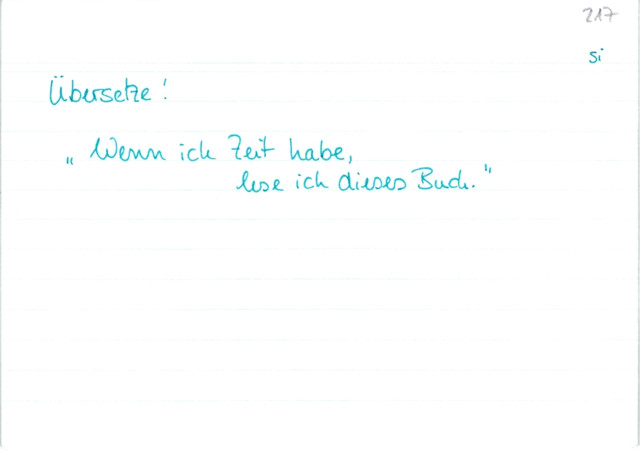 217
si
Übersetze!
„Wenn ich Zeit habe,
lese ich dieses Buch."